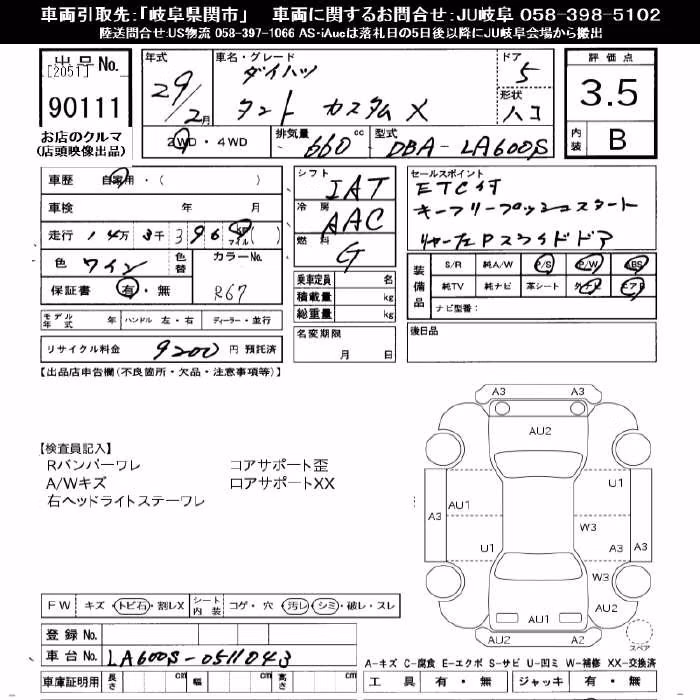 車両引取先:「岐阜県関市」 車両に関するお問合せ:JU岐阜 058-398-5102
陸送問合せ:US物流 058-397-1066 AS-iAucは落札日の5日後以降にJU岐阜会場から搬出
出品No.
[2051]
90111
お店のクルマ
(店頭映像出品)
年式
29/2月
車名・グレード
ダイハツ
タント カスタムX
ドア
5
形状
ハコ
2WD・4WD
排気量 660 cc
型式 DBA-LA600S
評価点
3.5
内装 B
車歴 自家用・( )
車検 年 月
走行 14万 3千 396 km マイル ( )
色 ワイン 色替
カラーNo.
R67
保証書 有・無
モデル年式 年 ハンドル 左・右 ディーラー・並行
リサイクル料金 9200 円 預託済
シフト IAT
冷房 AAC
燃料 G
乗車定員 名
積載量 kg
総重量 kg
名変期限
月 日
セールスポイント
ETC付
キーフリープッシュスタート
両側PスライドドA
装備品
S/R 純A/W P/S P/W ABS
純TV 純ナビ 革シート 外ナビ エアB
ナビ型番:
後日品
【出品店申告欄(不良箇所・欠品・注意事項等)】
【検査員記入】
Rバンパーワレ コアサポート歪
A/Wキズ ロアサポートXX
右ヘッドライトステーワレ
A3 A3
AU2
U1
AU1
A3
W3
U1
A3
A3
W3
AU2
AU1
AU2
A2
スペア
FW キズ・トビ石・割レX シート内装 コゲ・穴・汚レ・シミ・破レ・スレ
登録No.
車台No. LA600S-0511043
車庫証明用 長さ cm 幅 cm 高さ cm
A-キズ C-腐食 E-エクボ S-サビ U-凹ミ W-補修 XX-交換済
工具 有・無 ジャッキ 有・無